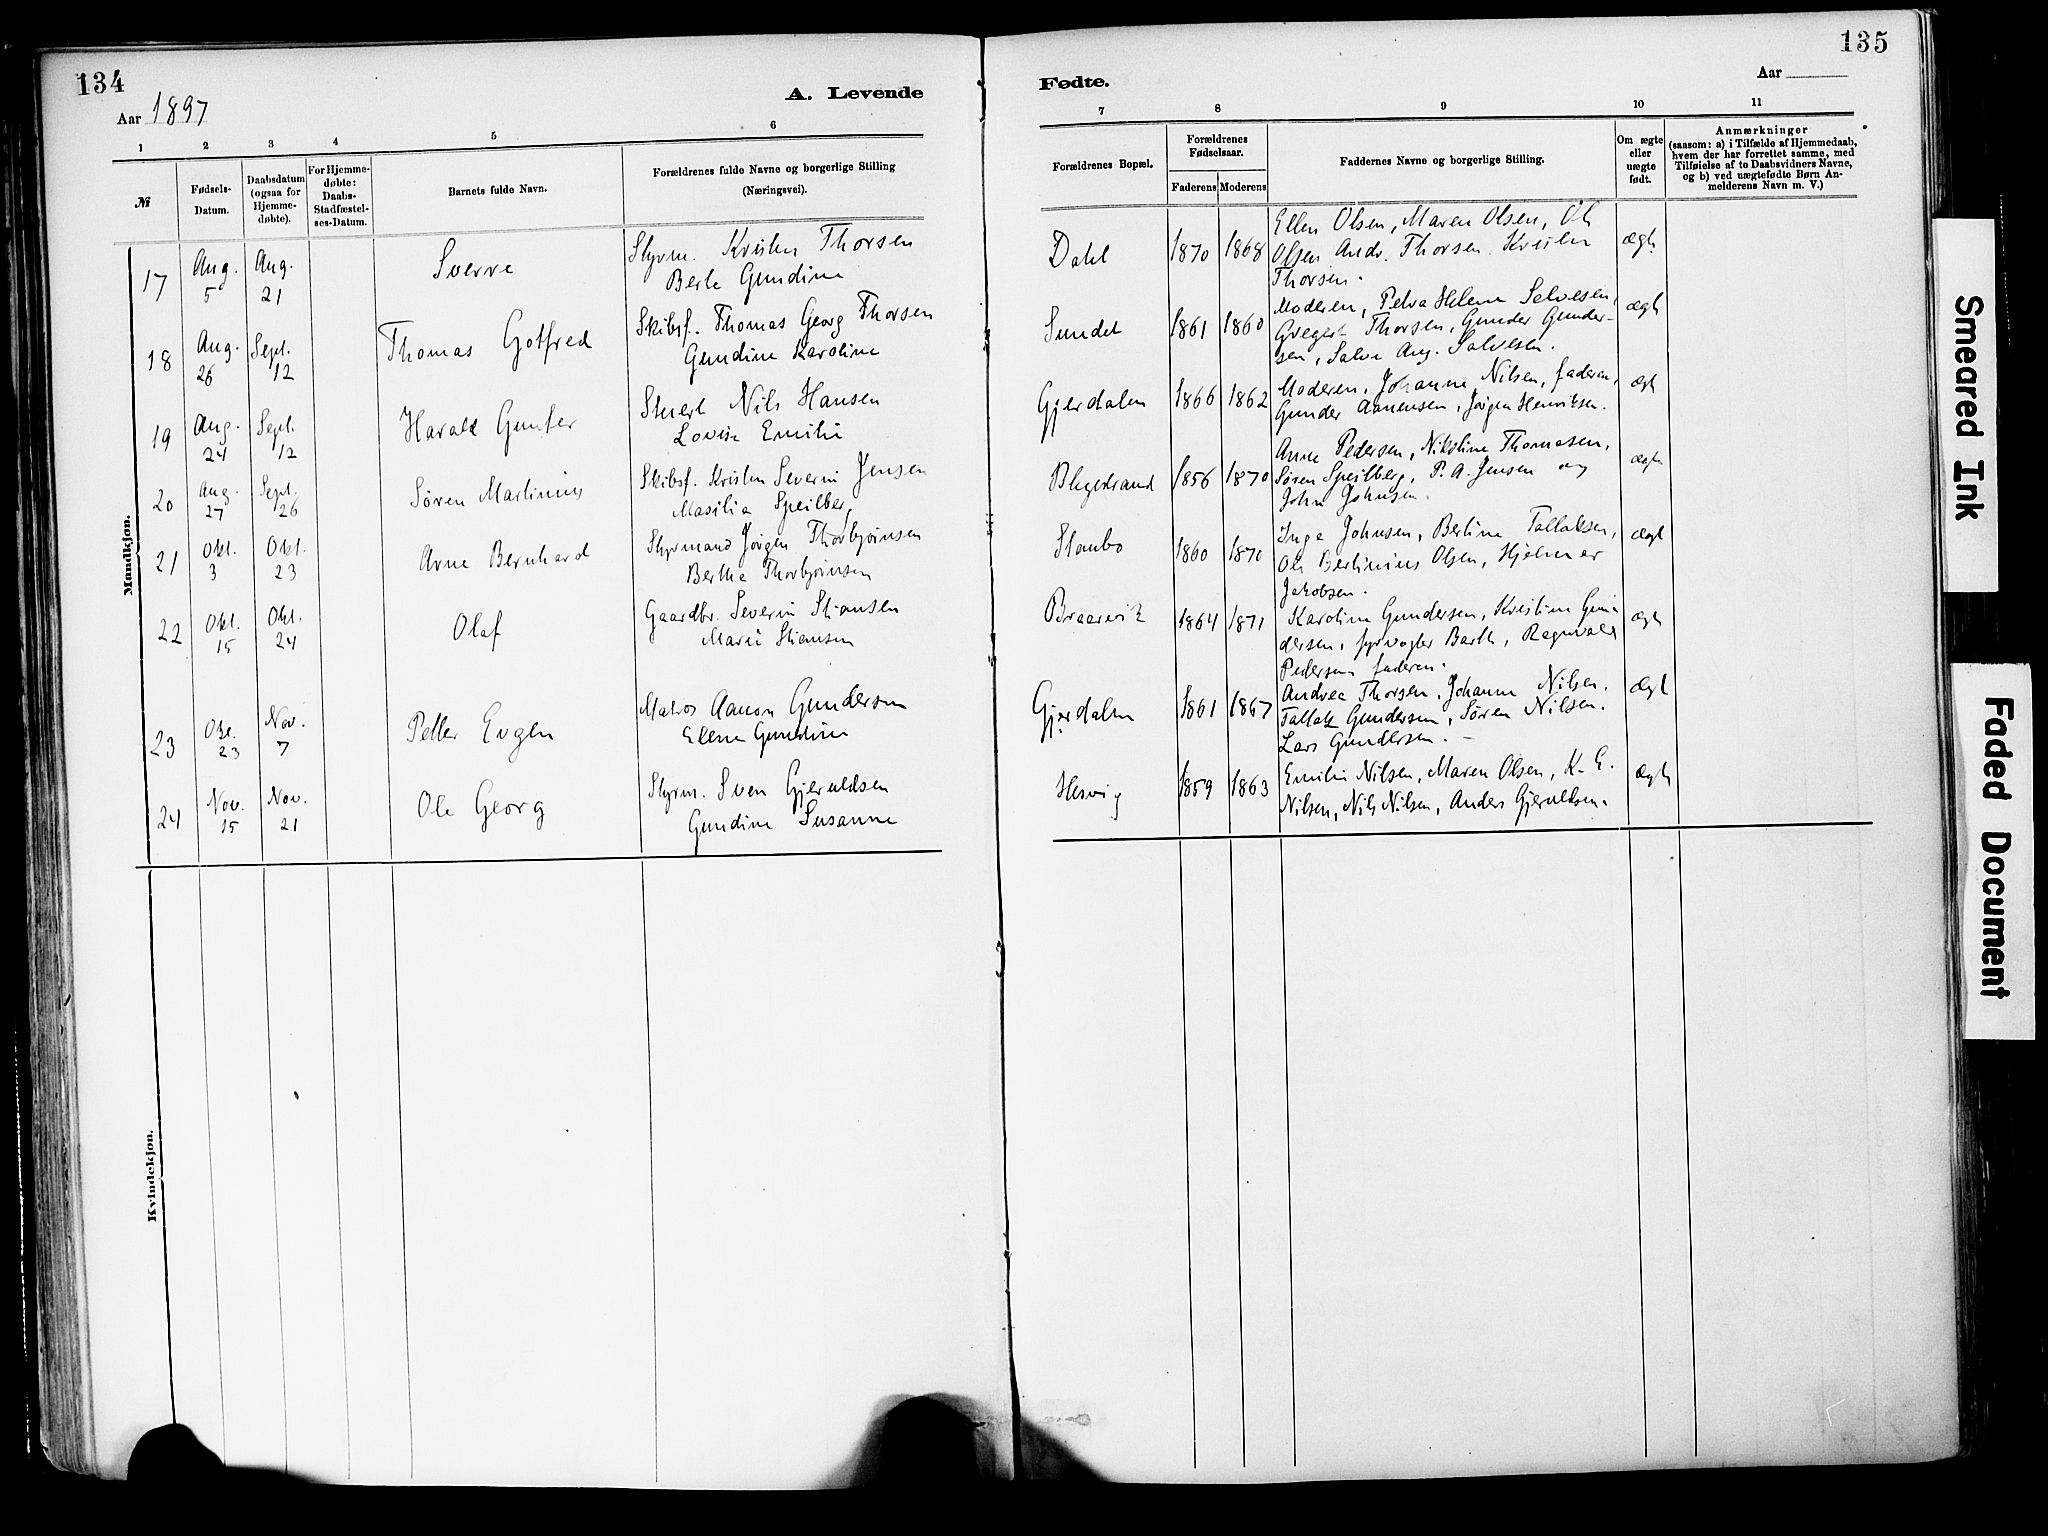 134
Aar 1897
A. Levende
1 2 3 4 5 6
№
Fødsels-
Datum.
Daabsdatum
(ogsaa for
Hjemme-
døbte).
For Hjemme-
døbte:
Daabs-
Stadfæstel-
ses-Datum.
Barnets fulde Navn.
Forældrenes fulde Navne og borgerlige Stilling
(Næringsvei).
Mandkjøn.
17 Aug. 5 Aug. 21 Sverre Styrm. Kristen Thorsen
Berte Gundine
18 Aug. 26 Sept. 12 Thomas Gotfred Skibsf. Thomas Georg Thorsen
Gundine Karoline
19 Aug. 24 Sept. 12 Harald Gunter Stuert Nils Hansen
Lovise Emilie
20 Aug. 27 Sept. 26 Søren Martinius Skibsf. Kristen Severin Jensen
Masilia Speilberg
21 Okt. 3 Okt. 23 Arne Bernhard Styrmand Jørgen Thorbjørnsen
Berthe Thorbjørnsen
22 Okt. 15 Okt. 24 Olaf Gaardbr. Severin Stiansen
Marie Stiansen
23 Okt. 23 Nov. 7 Petter Eugen Matros Aanon Gundersen
Elene Gundine
24 Nov. 15 Nov. 21 Ole Georg Styrm. Sven Gjeruldsen
Gundine Susanne
Kvindekjøn.
135
Fødte.
Aar
7 8 9 10 11
Forældrenes Bopæl.
Forældrenes
Fødselsaar.
Faderens Moderens
Faddernes Navne og borgerlige Stilling.
Om ægte
eller
uægte
født.
Anmærkninger
(saasom: a) i Tilfælde af Hjemmedaab,
hvem der har forrettet samme, med
Tilføielse af to Daabsvidners Navne,
og b) ved uægtefødte Børn An-
melderens Navn m. V.)
Ellen Olsen, Maren Olsen, Ole
Dahl 1870 1868 Olsen Andr. Thorsen. Kristen ægte
Thorsen.
Moderen, Petra Helene Salvesen, ægte
Sundet 1861 1860 Gregert Thorsen, Gunder Gunder-
sen, Salve Aug. Salvesen.
Gjerdalen 1866 1862 Moderen, Johanne Nilsen, faderen, ægt
Gunder Aanensen, Jørgen Henriksen.
Anne Pedersen, Nikoline Thomasen,
1856 1870 Søren Speilberg, P. A. Jensen og ægte
John Johnsen.
Inga Johnsen, Bertine Tallaksen, ægt
Stambo 1860 1870 Ole Bertinius Olsen, Hjelmer
Jakobsen.
Braarvik 1864 1871 Karoline Gundersen, Kristine Gun- ægte
dersen, fyrvogter Barth, Ragnvald
Pedersen faderen.
Andrea Thorsen, Johanne Nilsen. ægt
Gjerdalen 1861 1867 Tallak Gundersen, Søren Nilsen.
Lars Gundersen.
Hesvig 1859 1863 Emilie Nilsen, Maren Olsen, K. E. ægte
Nilsen, Nils Nilsen, Anders Gjeruldsen.
Smeared Ink
Faded Document